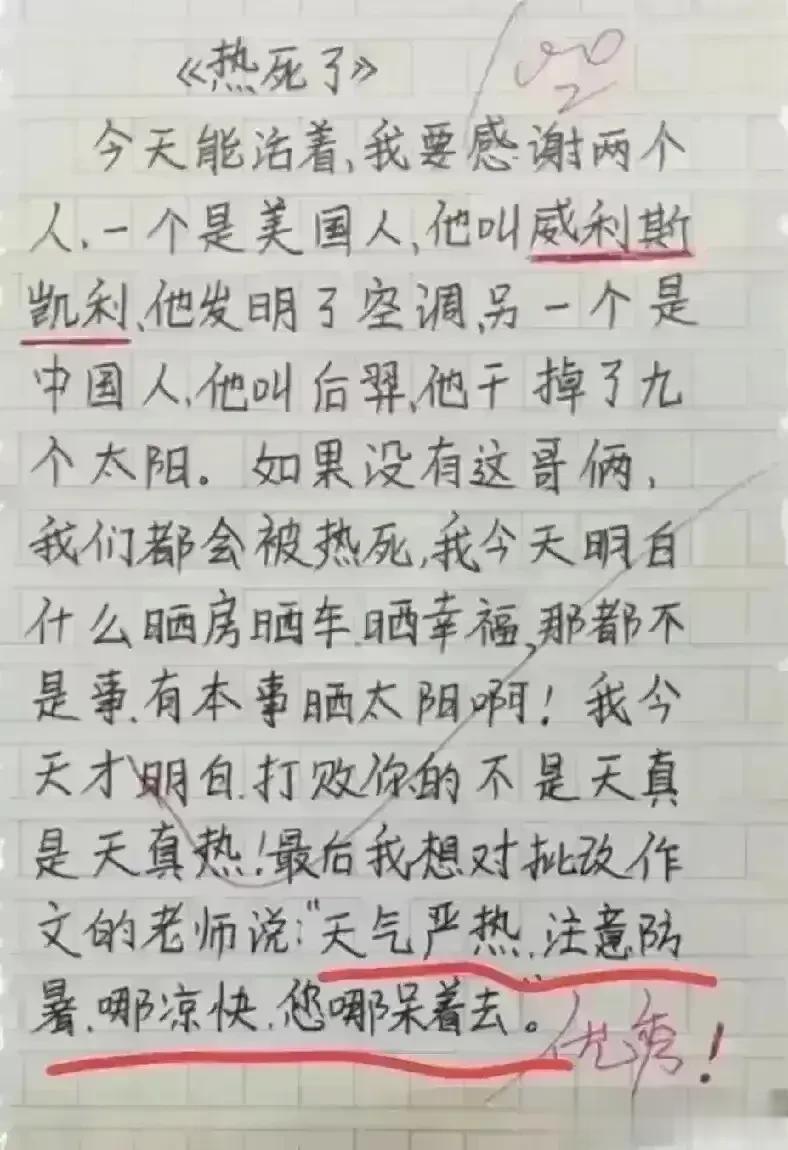 《热死了》
今天能活着,我要感谢两个
人、一个是美国人,他叫威利斯
凯利、他发明了空调,另一个是
中国人,他叫后羿,他干掉了九
个太阳。如果没有这哥俩,
我们都会被热死,我今天明白
什么晒房晒车、晒幸福,那都不
是事、有本事晒太阳啊!我今
天才明白、打败你的不是天真
是天真热!最后我想对批改作
文的老师说:“天气严热、注意防
暑、哪凉快、您哪呆着去”。
优秀!